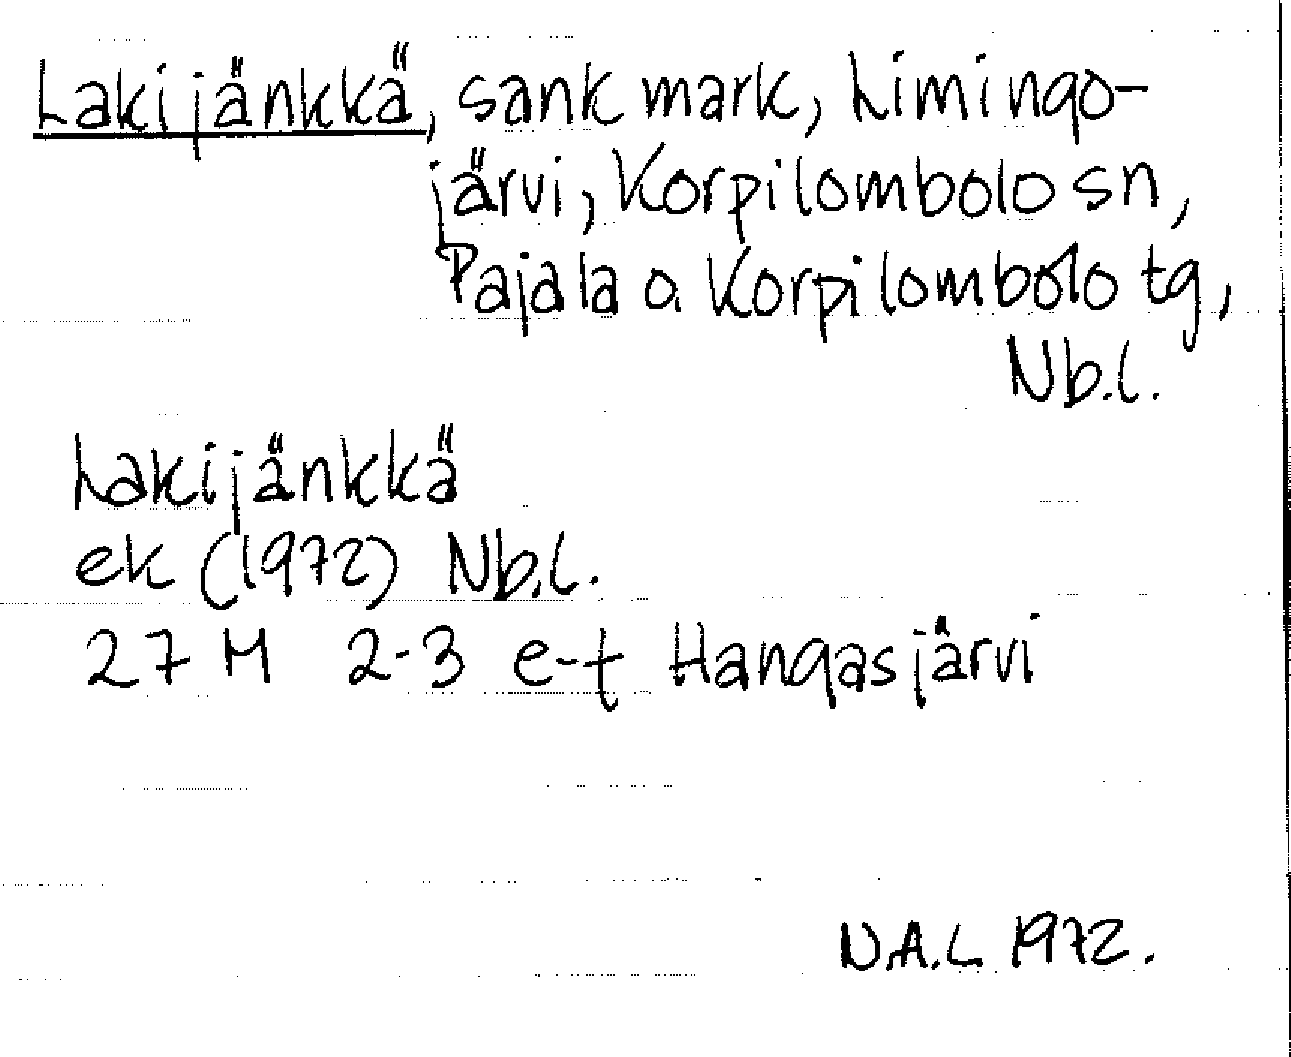 Lakijänkkä, sank mark, Limingo-
järvi, Korpilombolo sn,
Pajala o. Korpilombolo tg,
Nb.l.
Lakijänkkä
ek (1972) Nb.l.
27 M 2-3 e-f Hangasjärvi
N.A.L 1972.